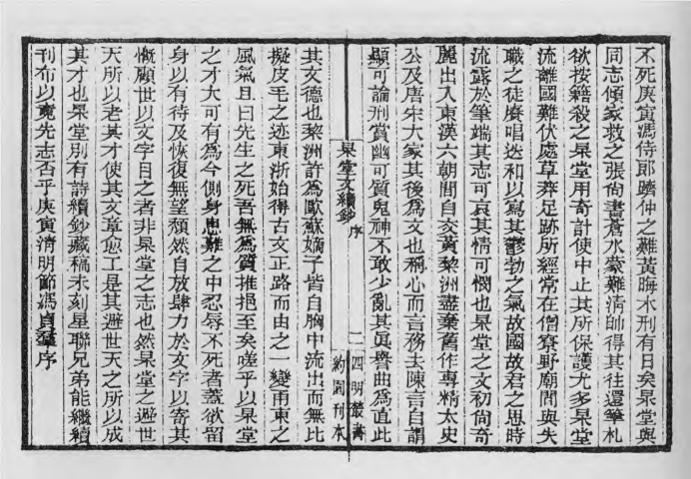 不死庚寅馮侍郎躋仲之難黃晦木刑有日矣杲堂與
同志傾家救之張尚書蒼水蒙難淸帥得其往還筆札
欲按籍殺之杲堂用奇計使中止其所保護尤多杲堂
流離國難伏處草莽足跡所經常在僧寮野廟間與失
職之徒賡唱迭和以寫其鬱勃之氣故國故君之思時
流露於筆端其志可哀其情可憫也杲堂之文初尙奇
麗出入東漢六朝間自交黃黎洲盡棄舊作專精太史
公及唐宋大家其後爲文也稱心而言務去陳言自謂
顯可論刑賞幽可質鬼神不敢少亂其眞譽曲爲直此
杲堂文續鈔 序
二 四明叢書
約園刊本
其文德也黎洲許爲歐蘇嫡子皆自胸中流出而無比
擬皮毛之迹東浙始得古文正路而由之一變甬東之
風氣且曰先生之死吾無爲質推挹至矣嗟乎以杲堂
之才大可有爲今側身患難之中忍辱不死者蓋欲留
身以有待及恢復無望頹然自放肆力於文字以寄其
慨顧世以文字目之者非杲堂之志也然杲堂之遯世
天所以老其才使其文章愈工是其遯世天之所以成
其才也杲堂別有詩續鈔藏稿未刻星聯兄弟能繼續
刊布以竟先志否乎庚寅淸明節馮貞羣序